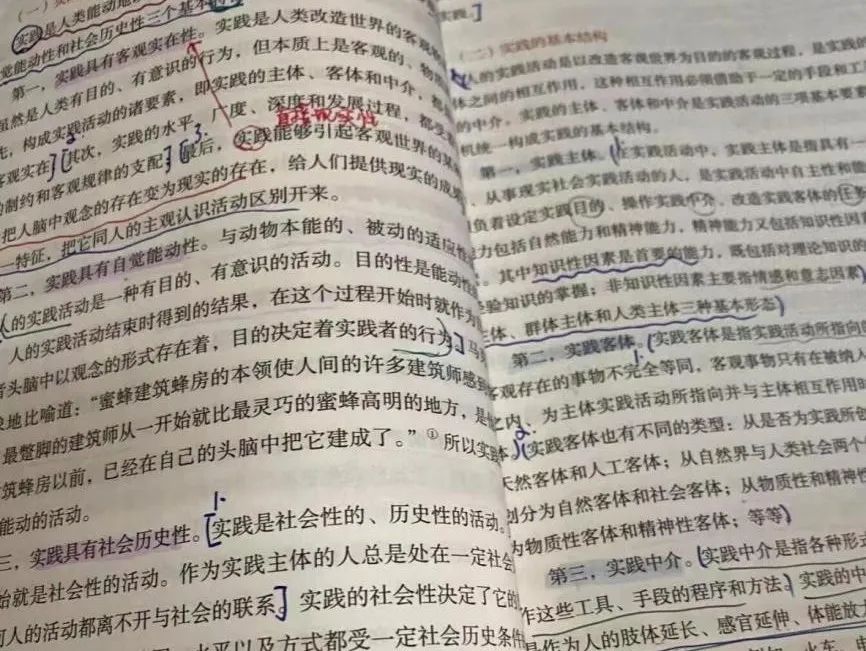 实践是人类能动地
觉能动性和社会历史性三个基本
第一，实践具有客观实在性。实践是人类改造世界的客观
虽然是人类有目的、有意识的行为，但本质上是客观的、物
构成实践活动的诸要素，即实践的主体、客体和中介，都
客观实在】【其次，实践的水平、广度、深度和发展过程，都受
直接现实性
的制约和客观规律的支配】【最后，实践能够引起客观世界的某
把人脑中观念的存在变为现实的存在，给人们提供现实的成果
一特征，把它同人的主观认识活动区别开来。
第二，实践具有自觉能动性。与动物本能的、被动的适应性
人的实践活动是一种有目的、有意识的活动。目的性是能动性
人的实践活动结束时得到的结果，在这个过程开始时就作为
者头脑中以观念的形式存在着，目的决定着实践者的行为】马
象地比喻道：“蜜蜂建筑蜂房的本领使人间的许多建筑师感到
最蹩脚的建筑师从一开始就比最灵巧的蜜蜂高明的地方，是
筑蜂房以前，已经在自己的头脑中把它建成了。”①所以实践
能动的活动。
1.
三，实践具有社会历史性。【实践是社会性的、历史性的活动。
始就是社会性的活动。作为实践主体的人总是处在一定社会
何人的活动都离不开与社会的联系】实践的社会性决定了它的
水平以及方式都受一定社会历史条件
实践。】
（二）实践的基本结构
人的实践活动是以改造客观世界为目的的客观过程，是实践的
体之间的相互作用，这种相互作用必须借助于一定的手段和工
的中介。实践的主体、客体和中介是实践活动的三项基本要素
机统一构成实践的基本结构。
第一，实践主体。（在实践活动中，实践主体是指具有一
、从事现实社会实践活动的人，是实践活动中自主性和能
负着设定实践目的、操作实践中介、改造实践客体的任务
力包括自然能力和精神能力，精神能力又包括知识性因
。其中知识性因素是首要的能力，既包括对理论知识的
经验知识的掌握；非知识性因素主要指情感和意志因素）
主体、群体主体和人类主体三种基本形态）
第二，实践客体。（实践客体是指实践活动所指向
1.
客观存在的事物不完全等同，客观事物只有在被纳入
之内，为主体实践活动所指向并与主体相互作用时
2.
（实践客体也有不同的类型：从是否为实践所
天然客体和人工客体；从自然界与人类社会两个
划分为自然客体和社会客体；从物质性和精神性
为物质性客体和精神性客体；等等）
第三，实践中介。（实践中介是指各种形式
作这些工具、手段的程序和方法）实践的中
是作为人的肢体延长、感官延伸、体能放